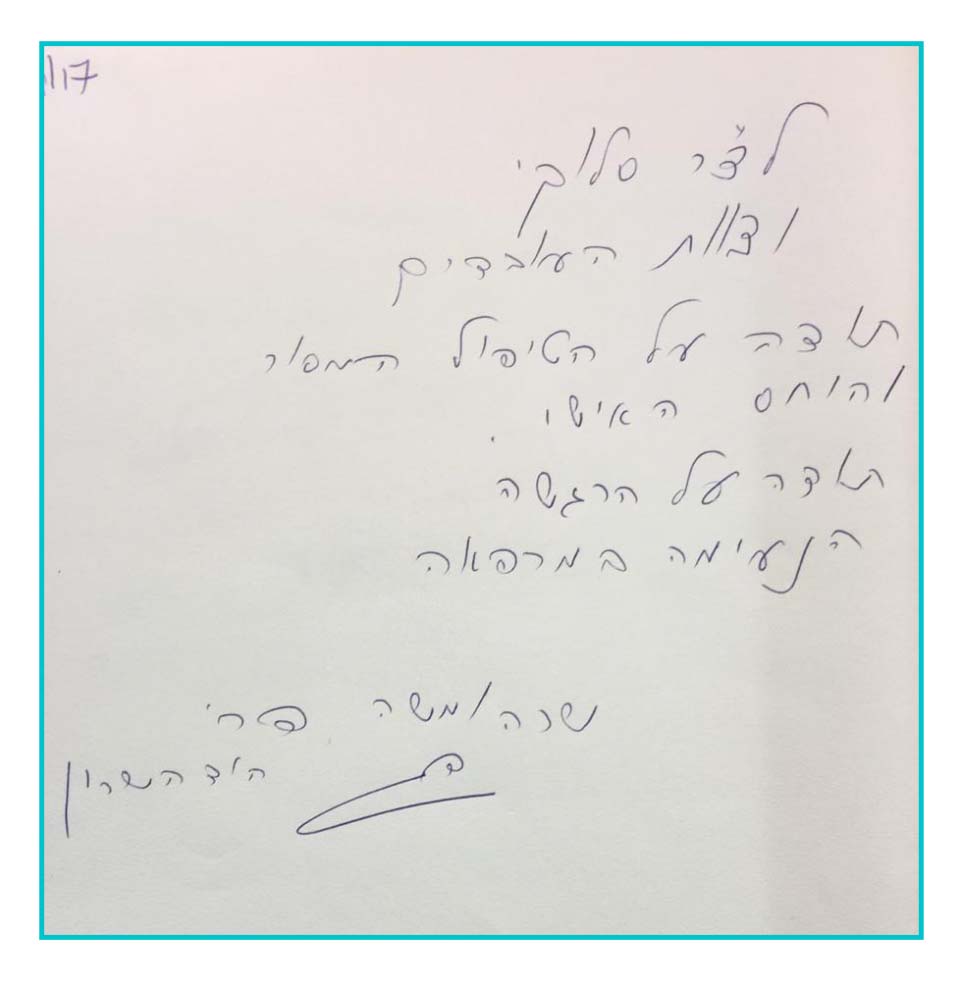 1/17
לד"ר סלוקי
וצוות העובדים
תודה על הטיפול המסור
והיחס האישי.
תודה על הרגשה
הנעימה במרפאה
שרה ומשה פרי
הוד השרון